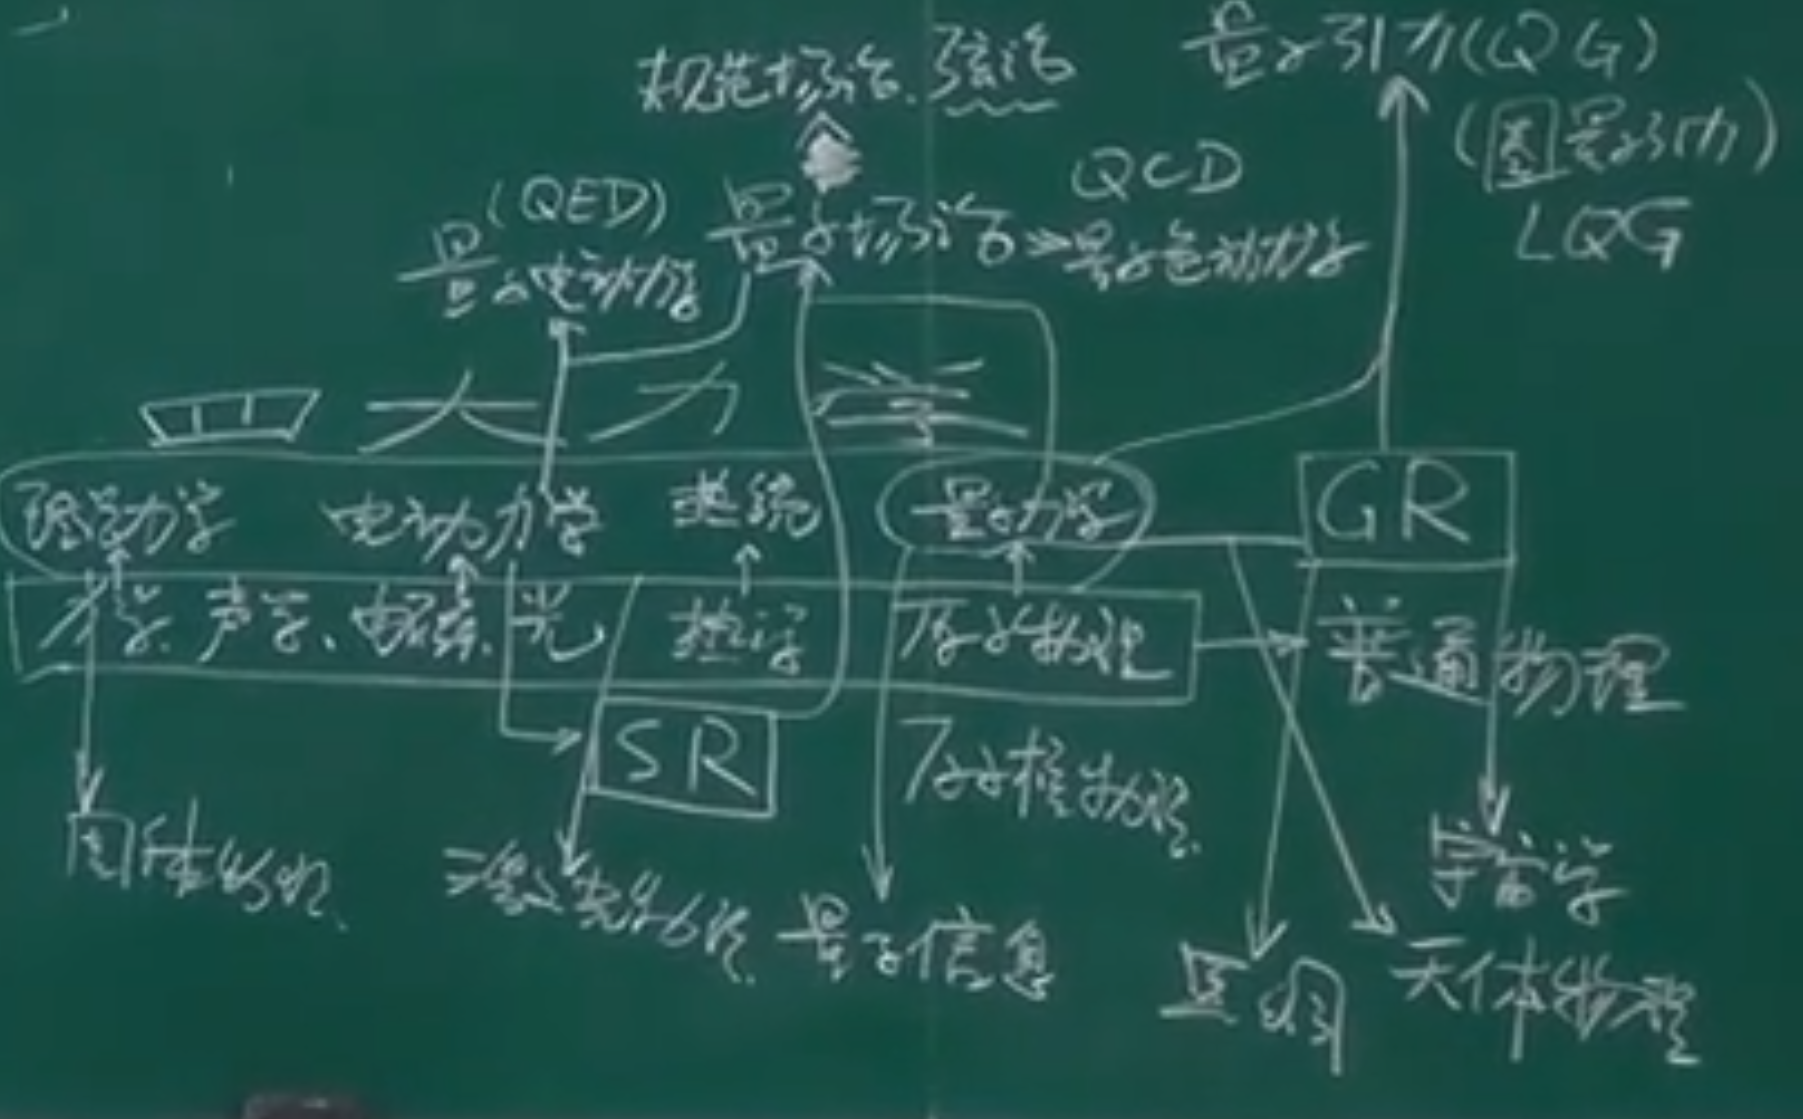 规范场论、弦论
量子引力(QG)
(圈量子引力)
LQG
(QED)
量子电动力学
量子场论
QCD
量子色动力学
四大力学
理学力学 电动力学 热统 量子力学 GR
力学、声学、电磁、光 热学 原子物理 普通物理
SR
原子核物理
固体物理
凝聚态物理
量子信息
黑洞
宇宙学
天体物理